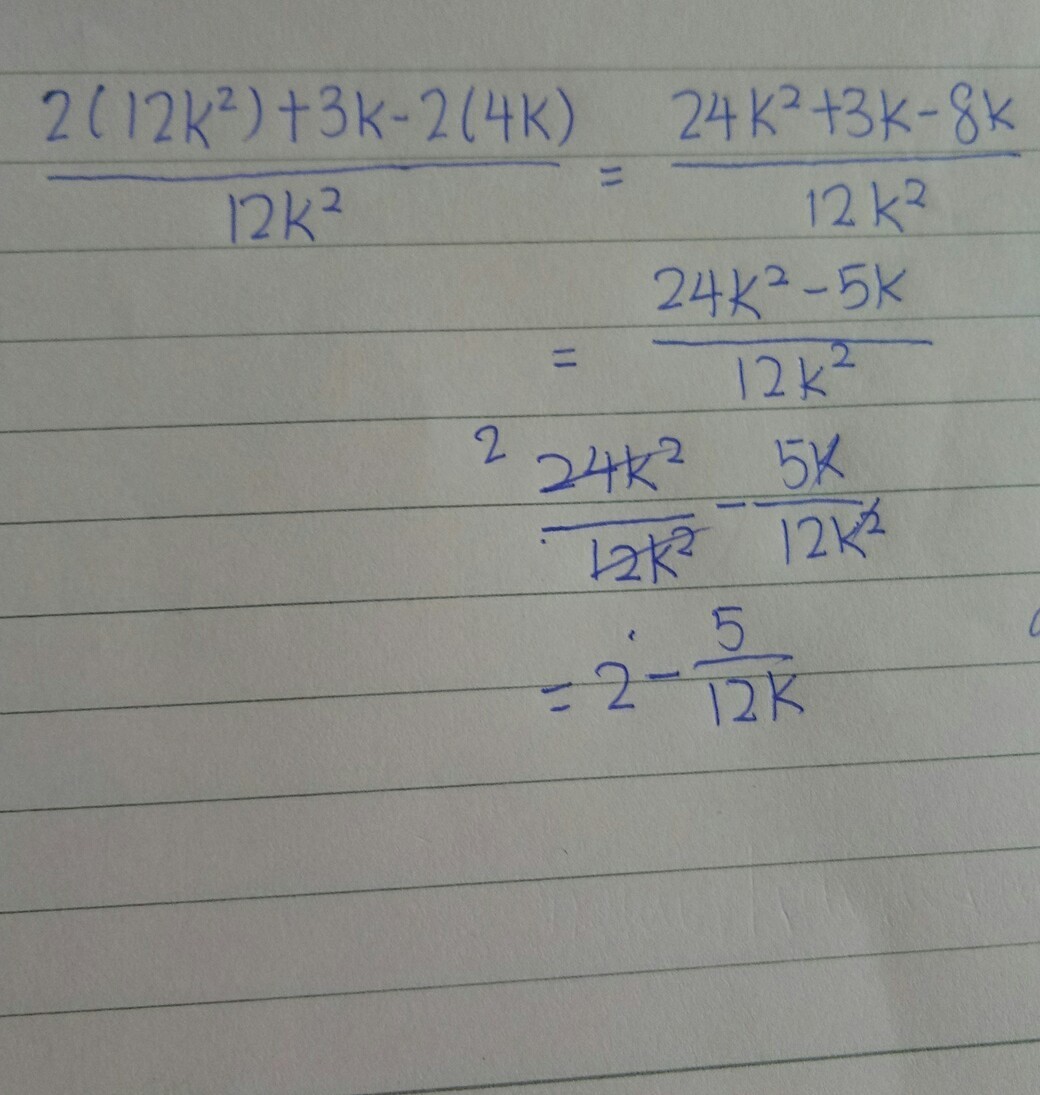 2(12k²)+3k-2(4k) / 12k² = 24k²+3k-8k / 12k²
= 24k²-5k / 12k²
2 24k² / 12k² - 5k / 12k²
= 2 - 5 / 12k